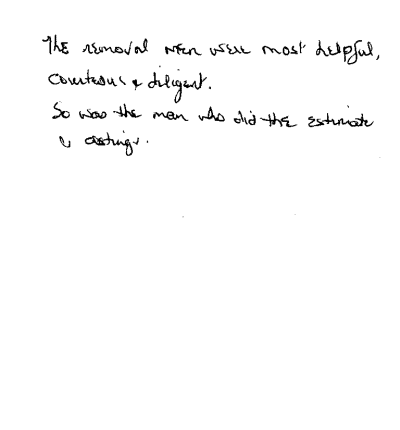 The removal men were most helpful,
courteous & diligent.
So was the man who did the estimate
& costings.